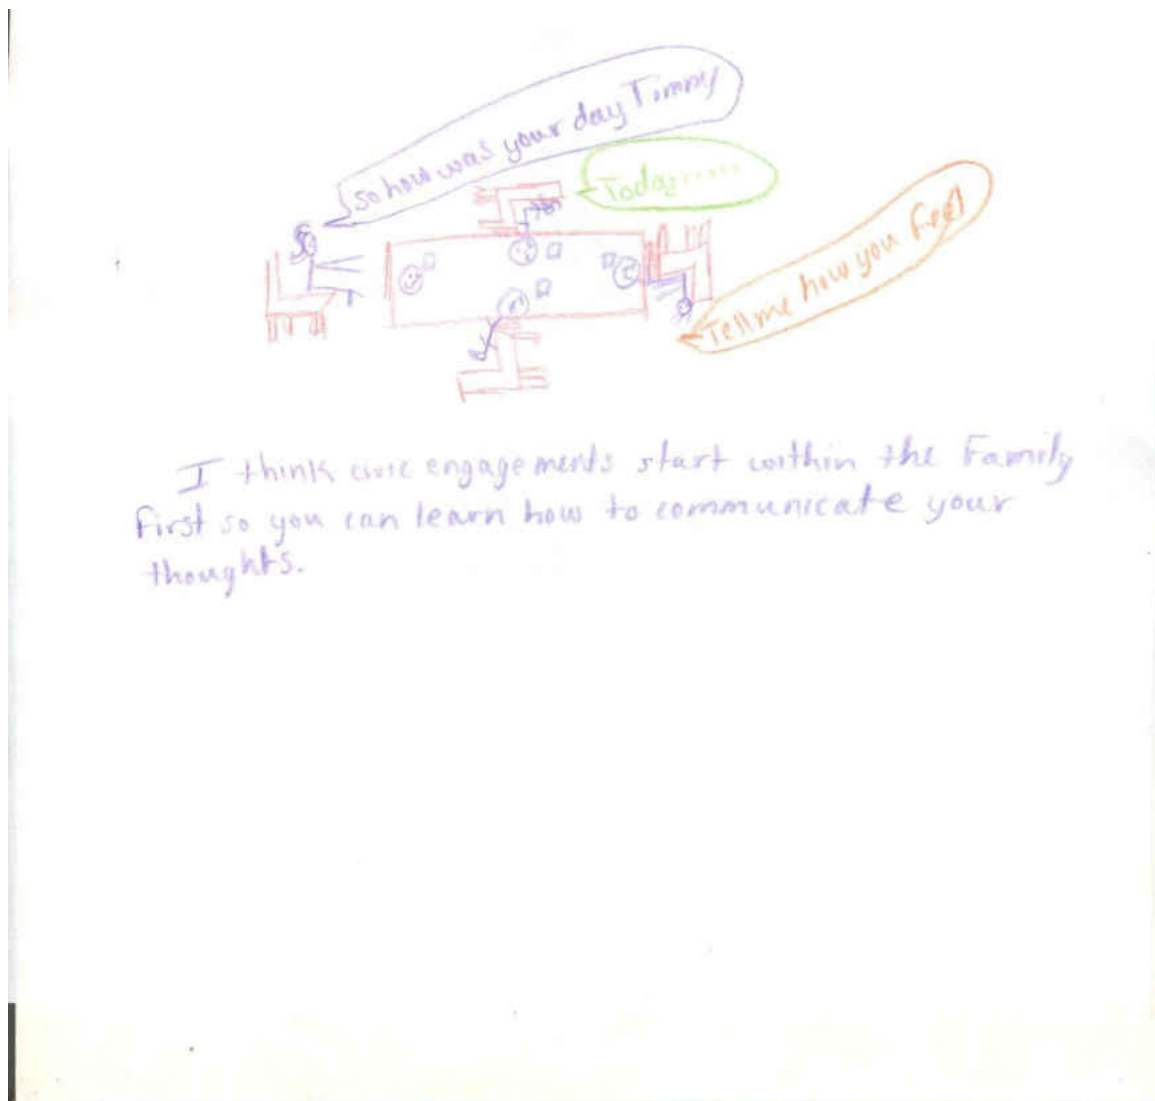 so how was your day Timmy
Today......
Tell me how you feel
I think civic engagements start within the Family
first so you can learn how to communicate your
thoughts.